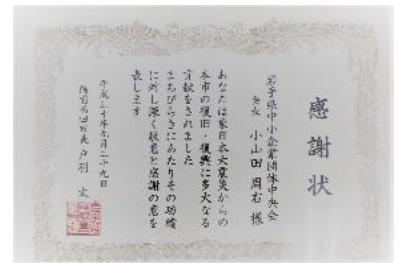 感謝状
岩手県中小企業団体中央会
会長 小山田周右 様
あなたは東日本大震災からの
本市の復旧・復興に多大なる
貢献をされました
まちびらきにあたりその功績
に対し深く敬意と感謝の意を
表します
平成三十年九月二十九日
陸前高田市長 戸羽 太